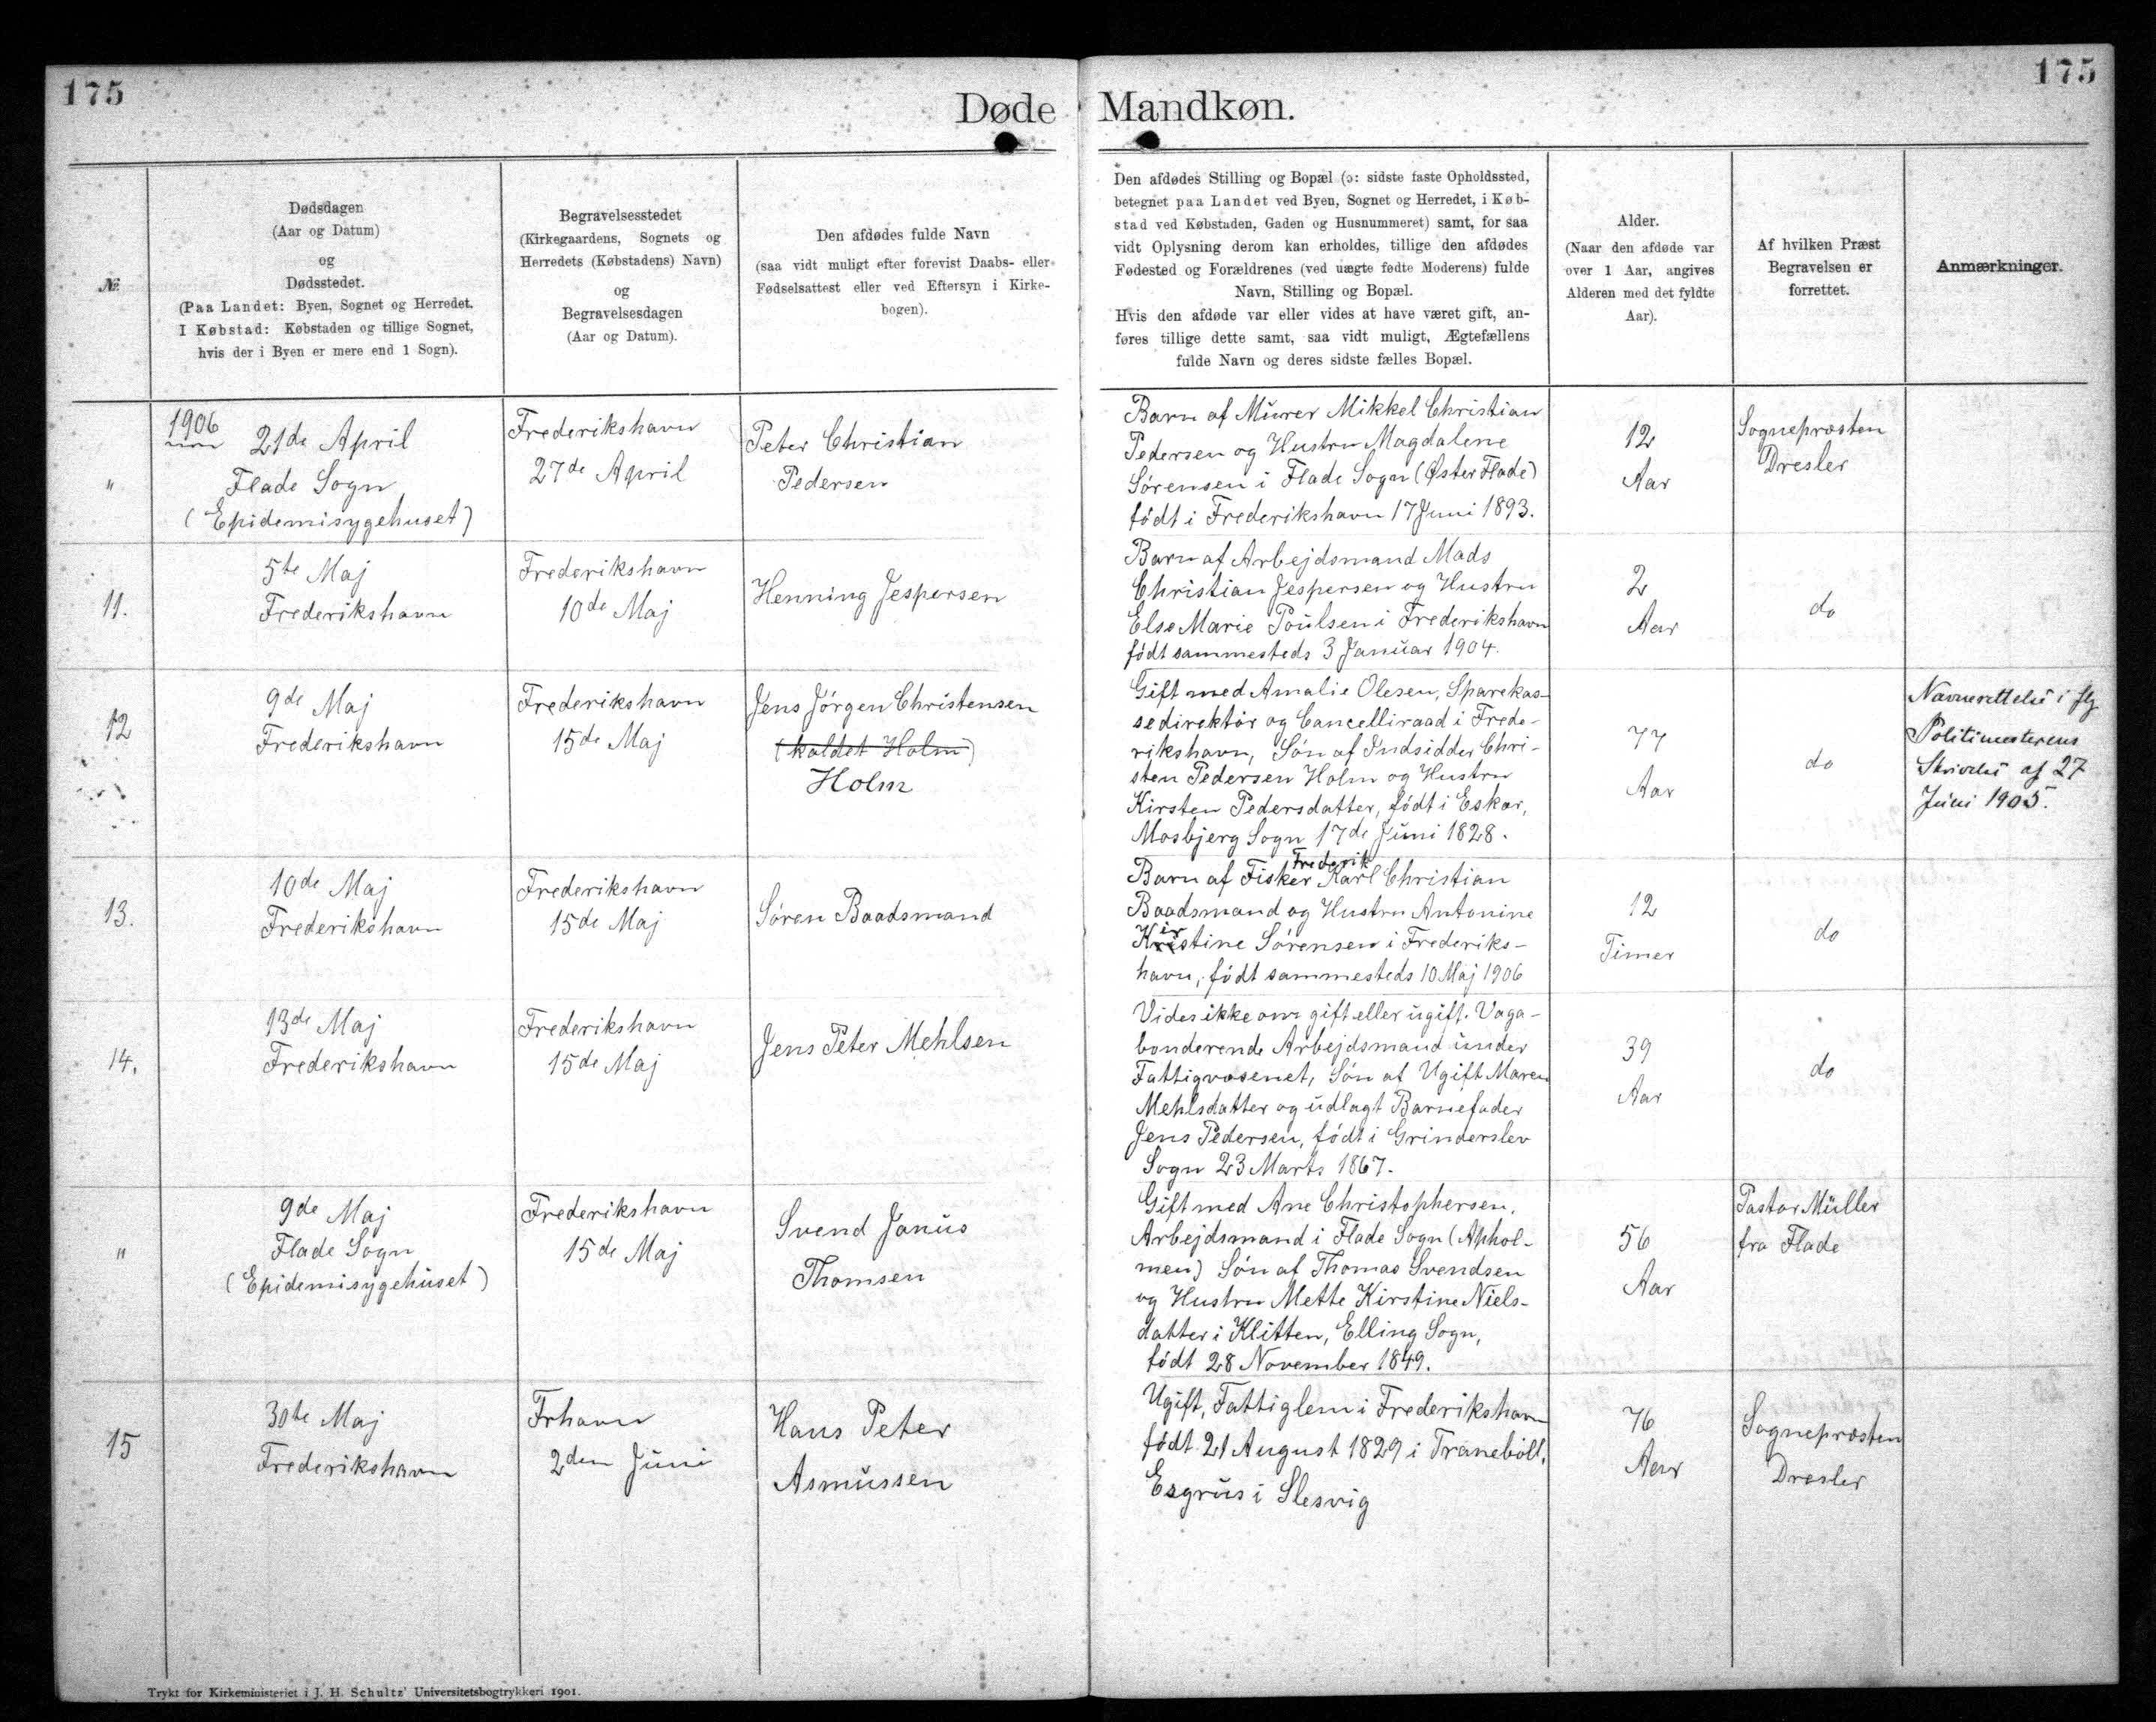 175
175
Døde Mandkøn.
№
Dødsdagen
(Aar og Datum)
og
Dødsstedet.
(Paa Landet: Byen, Sognet og Herredet.
I Købstad: Købstaden og tillige Sognet,
hvis der i Byen er mere end 1 Sogn).
Begravelsesstedet
(Kirkegaardens, Sognets og
Herredets (Købstadens) Navn)
og
Begravelsesdagen
(Aar og Datum).
Den afdødes fulde Navn
(saa vidt muligt efter forevist Daabs- eller
Fødselsattest eller ved Eftersyn i Kirke-
bogen).
Den afdødes Stilling og Bopæl (ɔ: sidste faste Opholdssted,
betegnet paa Landet ved Byen, Sognet og Herredet, i Køb-
stad ved Købstaden, Gaden og Husnummeret) samt, for saa
vidt Oplysning derom kan erholdes, tillige den afdødes
Fødested og Forældrenes (ved uægte fødte Moderens) fulde
Navn, Stilling og Bopæl.
Hvis den afdøde var eller vides at have været gift, an-
føres tillige dette samt, saa vidt muligt, Ægtefællens
fulde Navn og deres sidste fælles Bopæl.
Alder.
(Naar den afdøde var
over 1 Aar, angives
Alderen med det fyldte
Aar).
Af hvilken Præst
Begravelsen er
forrettet.
Anmærkninger.
"
1906
21de April
Flade Sogn
(Epidemisygehuset)
Frederikshavn
27de April
Peter Christian
Pedersen
Barn af Murer Mikkel Christian
Pedersen og Hustru Magdalene
Sørensen i Flade Sogn (Øster Flade)
født i Frederikshavn 17 Juni 1893.
12
Aar
Sognepræsten
Dresler
11.
5te Maj
Frederikshavn
Frederikshavn
10de Maj
Henning Jespersen
Barn af Arbejdsmand Mads
Christian Jespersen og Hustru
Else Marie Poulsen i Frederikshavn
født sammesteds 3 Januar 1904.
2
Aar
do
12
9de Maj
Frederikshavn
Frederikshavn
15de Maj
Jens Jørgen Christensen
(kaldet Holm)
Holm
Gift med Amalie Olesen, Sparekas-
sedirektør og Cancelliraad i Frede-
rikshavn, Søn af Indsidder Chri-
sten Pedersen Holm og Hustru
Kirsten Pedersdatter, født i Eskær,
Mosbjerg Sogn 17de Juni 1828.
77
Aar
do
Navnerettelse i flg
Politimesterens
Skrivelse af 27
Juni 1905.
13.
10de Maj
Frederikshavn
Frederikshavn
15de Maj
Søren Baadsmand
Frederik
Barn af Fisker Karl Christian
Baadsmand og Hustru Antonine
Kirstine Sørensen i Frederiks-
havn, født sammesteds 10 Maj 1906
12
Timer
do
14.
13de Maj
Frederikshavn
Frederikshavn
15de Maj
Jens Peter Mehlsen
Vides ikke om gift eller ugift. Vaga-
bonderende Arbejdsmand under
Fattigvæsenet, Søn af Ugift Maren
Mehlsdatter og udlagt Barnefader
Jens Pedersen, født i Grinderslev
Sogn 23 Marts 1867.
39
Aar
do
"
9de Maj
Flade Sogn
(Epidemisygehuset)
Frederikshavn
15de Maj
Svend Janus
Thomsen
Gift med Ane Christophersen,
Arbejdsmand i Flade Sogn (Aphol-
men) Søn af Thomas Svendsen
og Hustru Mette Kirstine Niels-
datter i Klitten, Elling Sogn,
født 28 November 1849.
56
Aar
Pastor Müller
fra Flade
15
30te Maj
Frederikshavn
Frhavn
2den Juni
Hans Peter
Asmussen
Ugift, Fattiglem i Frederikshavn
født 21 August 1829 i Tranebøll,
Esgrus i Slesvig
76
Aar
Sognepræsten
Dresler
Trykt for Kirkeministeriet i J. H. Schultz' Universitetsbogtrykkeri 1901.